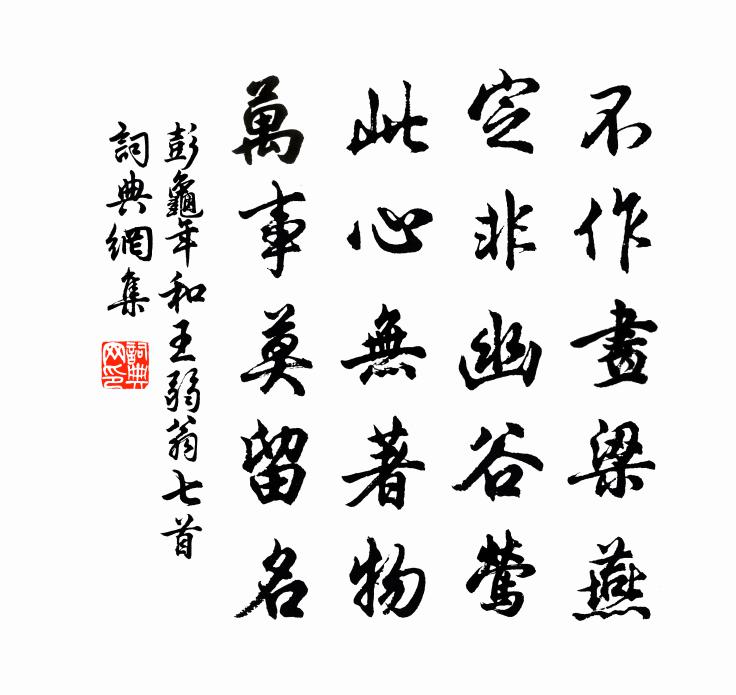 不作畫梁燕
定非幽谷鶯
此心無著物
萬事莫留名
彭龜年和王弱翁七首
詞典網集
詞典网印